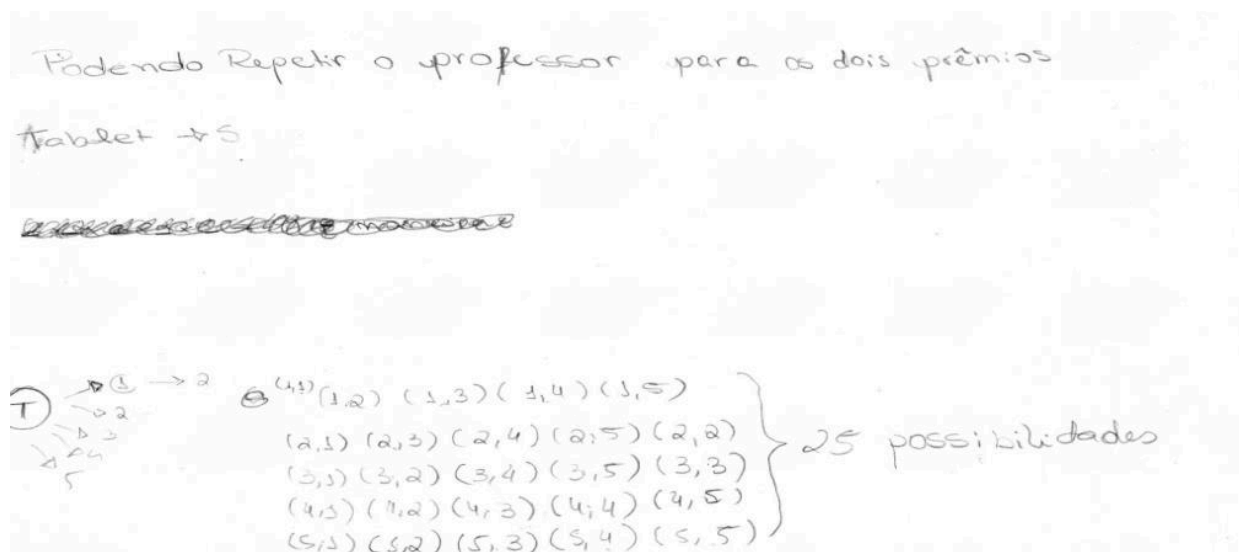 Podendo Repetir o professor para os dois prêmios
Tablet → 5
T → 1 → 2
→ 2
→ 3
→ 4
5
(1,1) (1,2) (1,3) (1,4) (1,5)
(2,1) (2,3) (2,4) (2,5) (2,2)
(3,1) (3,2) (3,4) (3,5) (3,3)
(4,1) (4,2) (4,3) (4,4) (4,5)
(5,1) (5,2) (5,3) (5,4) (5,5)
25 possibilidades